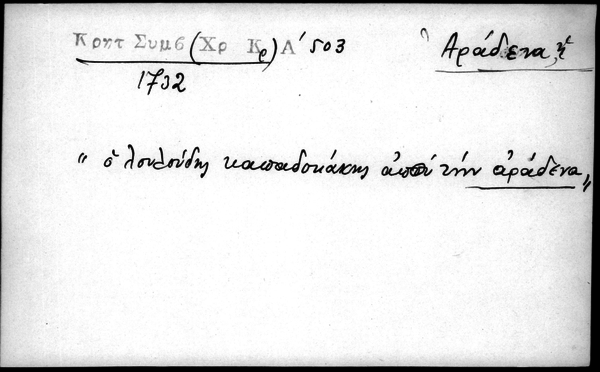 Κρητ Συμβ (Χρ Κρ) Α΄ 503
Ἀράδενα, ἡ
1732
" ὁ λουλούδης καπαδοκάκης ἀπὸ τὴν ἀράδενα "